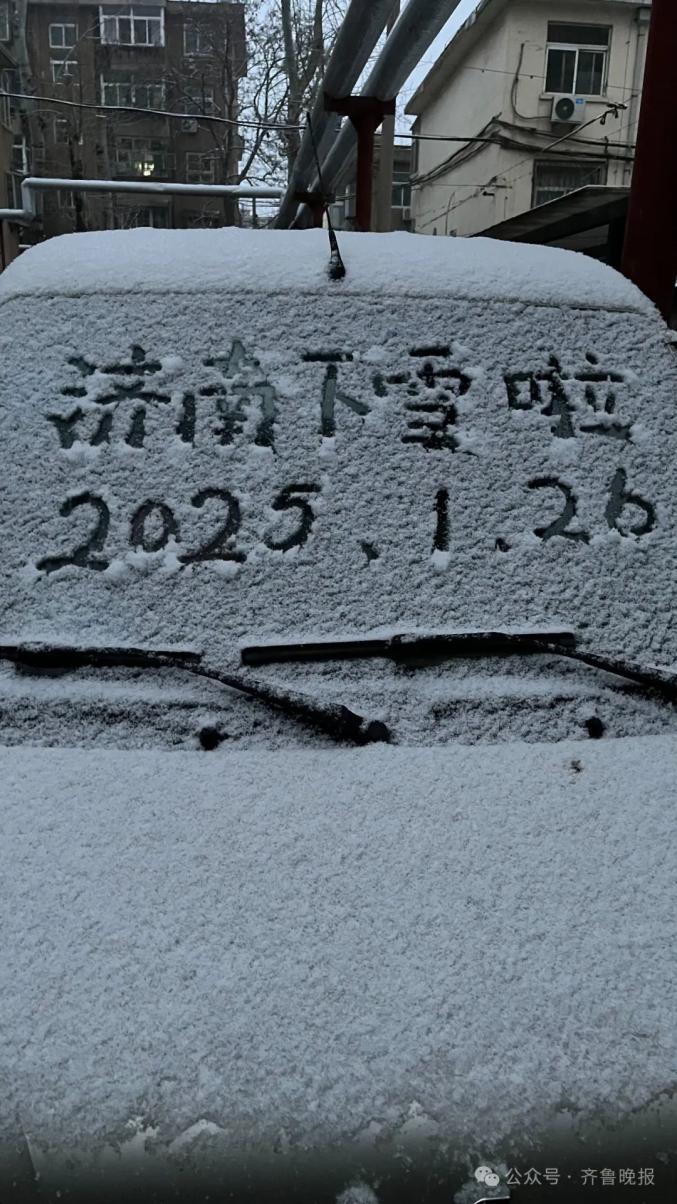 济南下雪啦
2025.1.26
公众号·齐鲁晚报